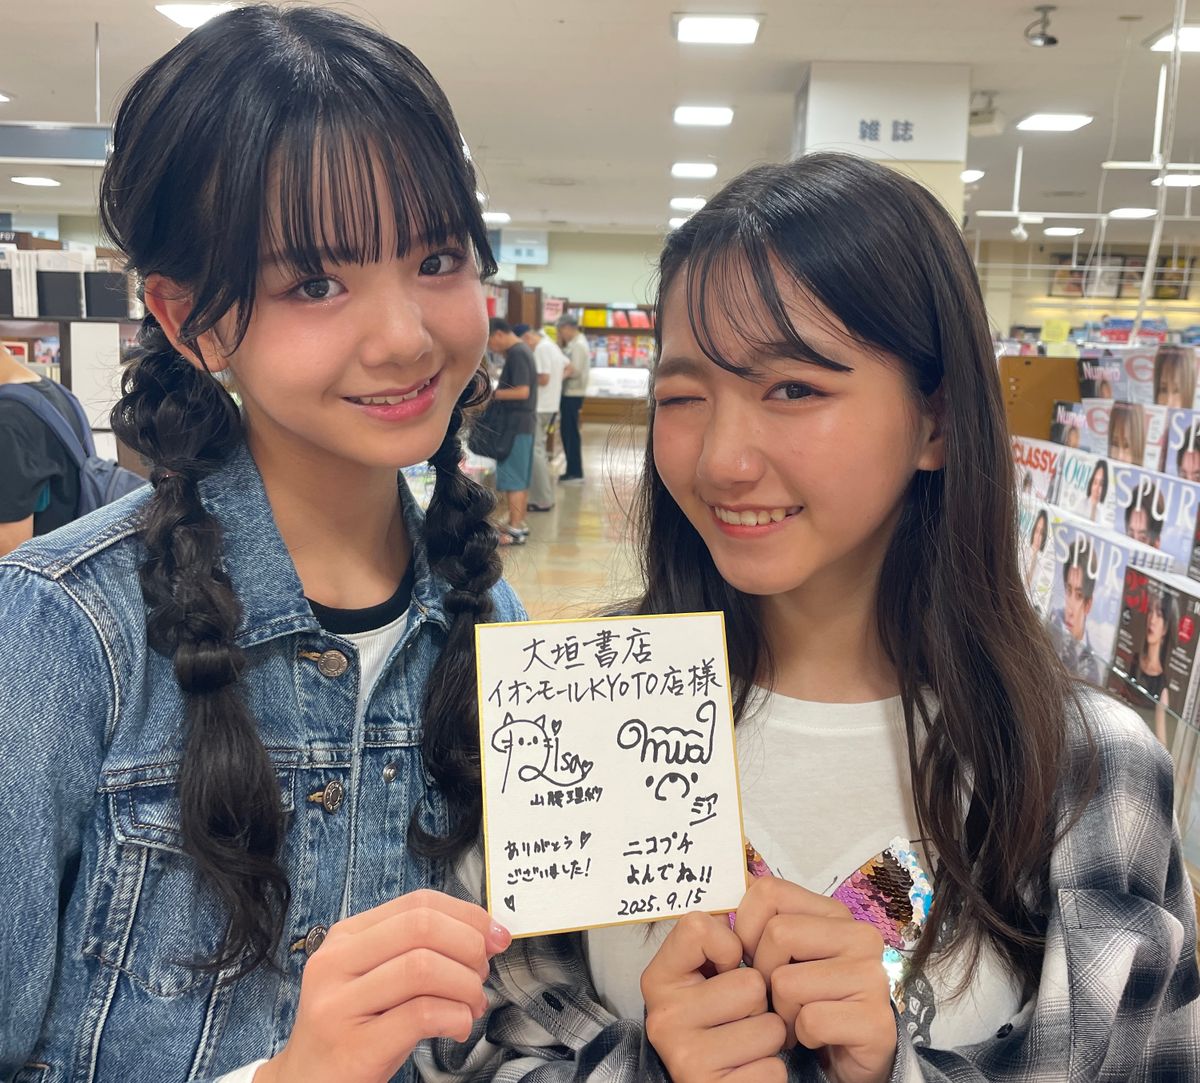 雑誌
大垣書店
イオンモールKYOTO店様
Lisa
mia
山腰理紗
ミア
ありがとう
ございました!
ニコプチ
よんでね!!
2025.9.15
Numéro
CLASSY
SPUR
SPUR